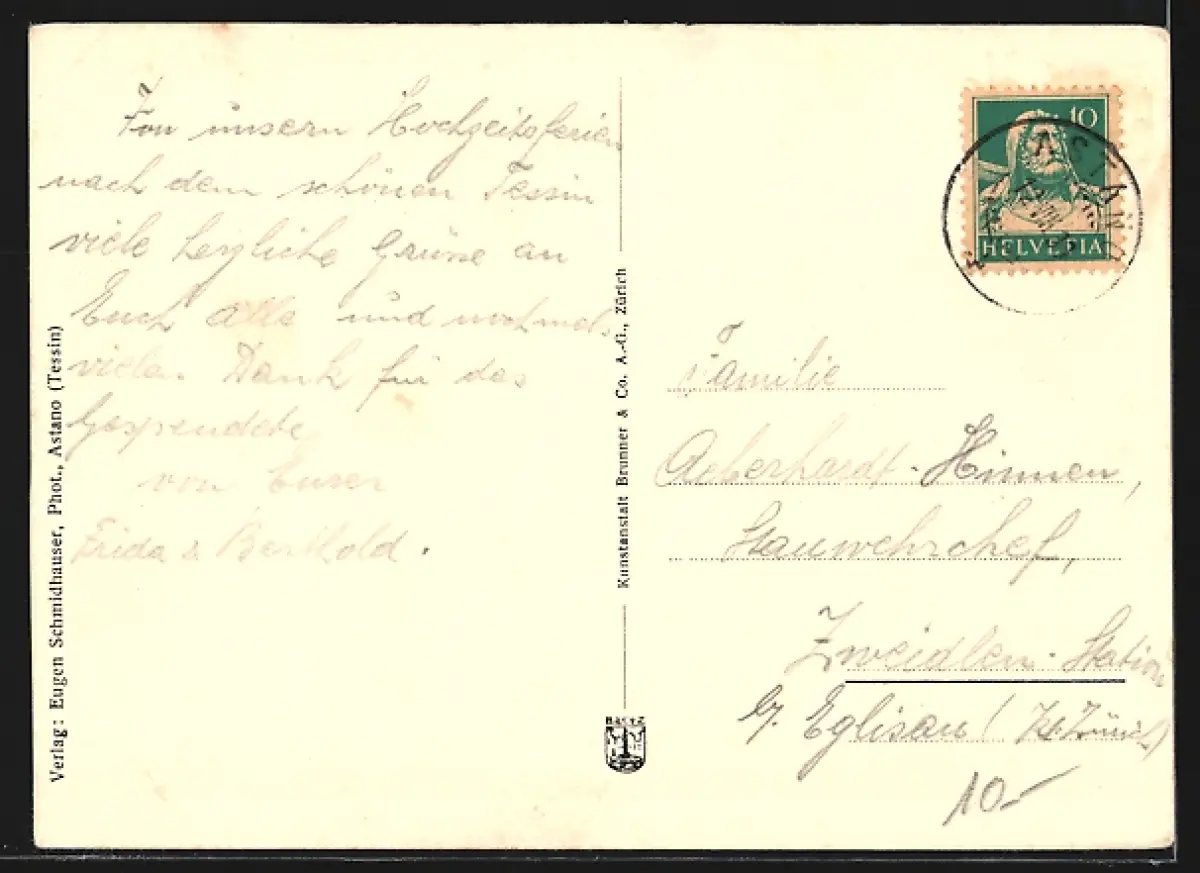 Von unsern Hochzeitsferien
nach dem schönen Tessin
viele herzliche Grüsse an
Euch alle und nochmals
vielen Dank für das
Gespendete
von Euren
Frida & Berthold.
Verlag: Eugen Schmidhauser, Phot., Astano (Tessin)
Kunstanstalt Brunner & Co. A.-G., Zürich
10
HELVETIA
ASTANO
Familie
Aeberhardt-Hinnen,
Stauwehrchef,
Zweidlen-Station
b/. Eglisau (Kt. Zürich)
10.-